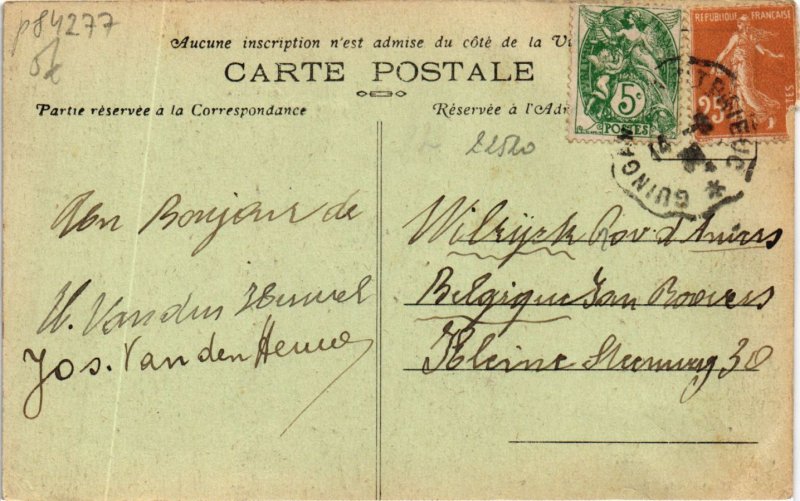 p84277
Aucune inscription n'est admise du côté de la Vi
CARTE POSTALE
Partie réservée à la Correspondance
Réservée à l'Adr
RÉPUBLIQUE FRANÇAISE
5c
POSTES
25
GUINGA
22520
Un Bonjour de
V. Van den Heuvel
Jos. Van den Heuve
Wilryck Prov. d'Anvers
Belgique Jan Boovers
Kleine Steenweg 38